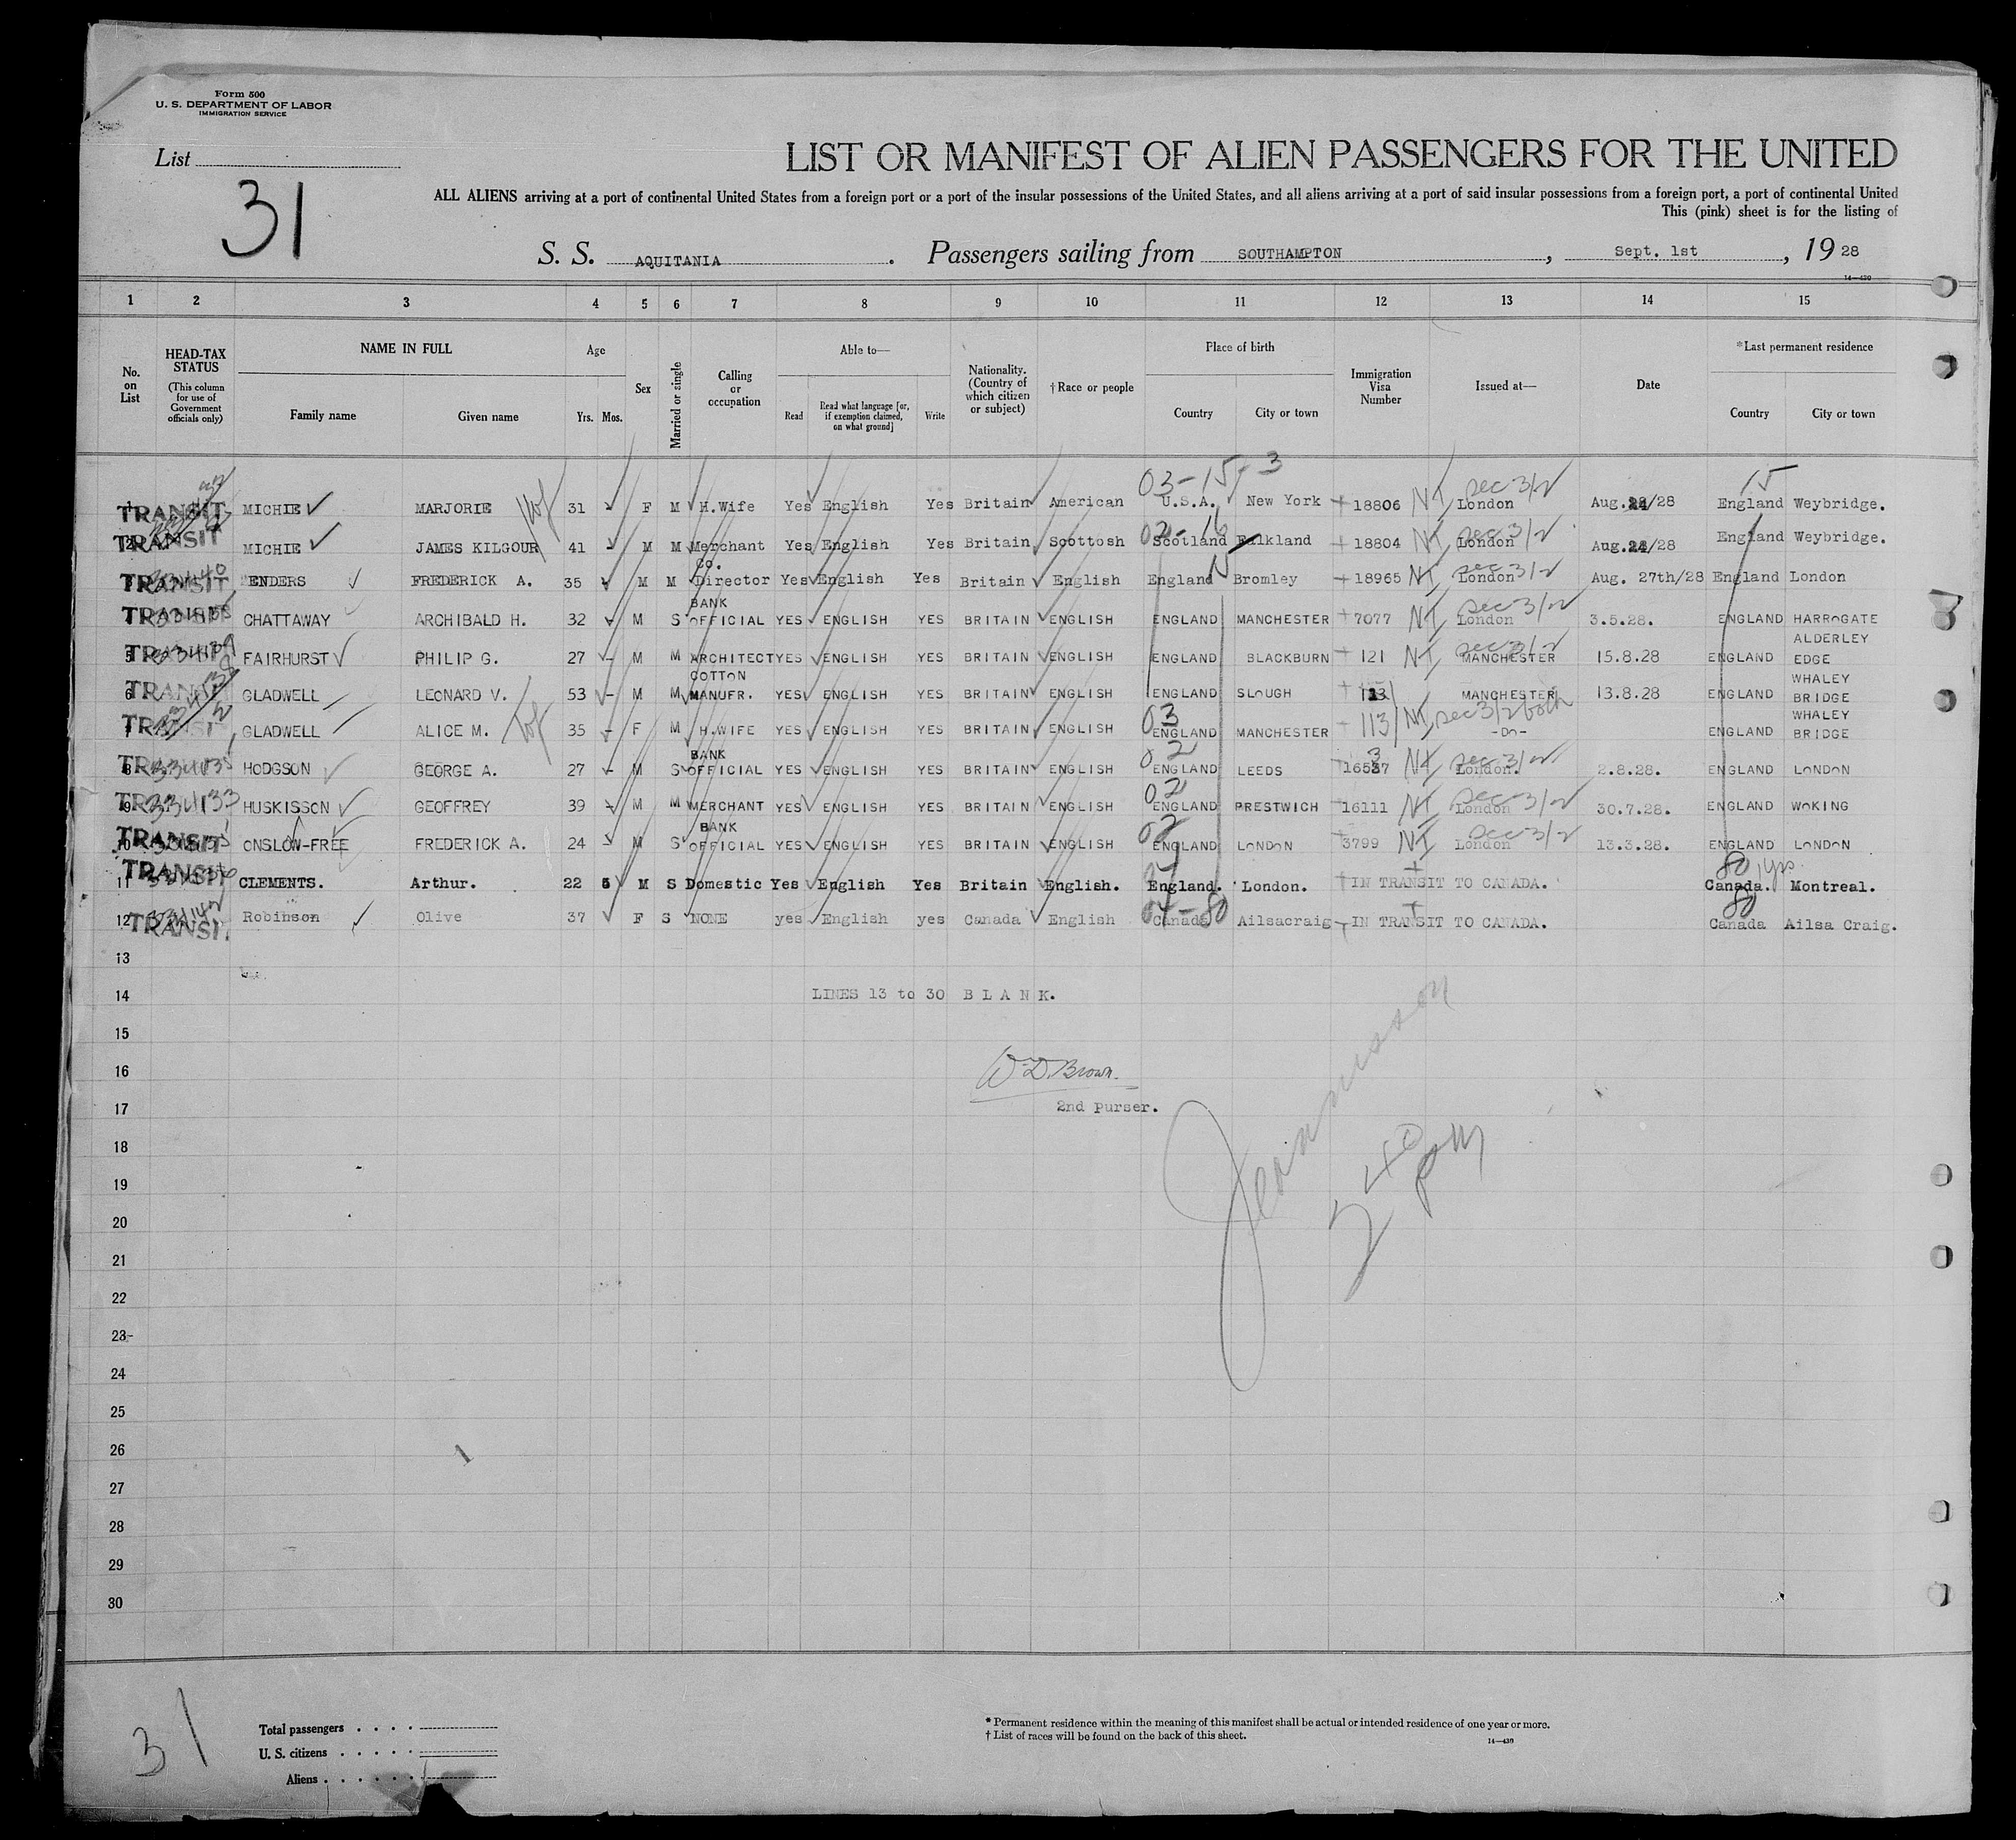 Form 500
U. S. DEPARTMENT OF LABOR
IMMIGRATION SERVICE
List
31
LIST OR MANIFEST OF ALIEN PASSENGERS FOR THE UNITED
ALL ALIENS arriving at a port of continental United States from a foreign port or a port of the insular possessions of the United States, and all aliens arriving at a port of said insular possessions from a foreign port, a port of continental United
This (pink) sheet is for the listing of
S. S. AQUITANIA. Passengers sailing from SOUTHAMPTON, Sept. 1st, 19 28
14-430
1 2 3 4 5 6 7 8 9 10 11 12 13 14 15
No. on List
HEAD-TAX STATUS (This column for use of Government officials only)
NAME IN FULL Family name Given name
Age Yrs. Mos.
Sex
Married or single
Calling or occupation
Able to— Read Read what language [or, if exemption claimed, on what ground] Write
Nationality. (Country of which citizen or subject)
†Race or people
Place of birth Country City or town
Immigration Visa Number
Issued at—
Date
*Last permanent residence Country City or town
03-15-3 15
TRANSIT MICHIE MARJORIE 31 F M H.Wife Yes English Yes Britain American U.S.A. New York 18806 NI sec 3/2 London Aug.24/28 England Weybridge.
TRANSIT MICHIE JAMES KILGOUR 41 M M Merchant Yes English Yes Britain Scottosh 02-16 Scotland Falkland 18804 NI sec 3/2 London Aug.24/28 England Weybridge.
TRANSIT ENDERS FREDERICK A. 35 M M Co. Director Yes English Yes Britain English England Bromley 18965 NI sec 3/2 London Aug. 27th/28 England London
TRANSIT CHATTAWAY ARCHIBALD H. 32 M S BANK OFFICIAL YES ENGLISH YES BRITAIN ENGLISH ENGLAND MANCHESTER 7077 NI sec 3/2 London 3.5.28. ENGLAND HARROGATE
TRANSIT 5 FAIRHURST PHILIP G. 27 - M M ARCHITECT YES ENGLISH YES BRITAIN ENGLISH ENGLAND BLACKBURN 121 NI sec 3/2 MANCHESTER 15.8.28 ENGLAND ALDERLEY EDGE
TRANSIT 6 GLADWELL LEONARD V. 53 - M M COTTON MANUFR. YES ENGLISH YES BRITAIN ENGLISH ENGLAND SLOUGH MANCHESTER 13.8.28 ENGLAND WHALEY BRIDGE
TRANSIT GLADWELL ALICE M. 35 - F M H.WIFE YES ENGLISH YES BRITAIN ENGLISH 03 ENGLAND MANCHESTER 113 NI, sec 3/2 both -DO- ENGLAND WHALEY BRIDGE
TRANSIT 8 HODGSON GEORGE A. 27 - M S BANK OFFICIAL YES ENGLISH YES BRITAIN ENGLISH 02 ENGLAND LEEDS 16537 NI sec 3/2 London. 2.8.28. ENGLAND LONDON
TRANSIT 9 334133 HUSKISSON GEOFFREY 39 M M MERCHANT YES ENGLISH YES BRITAIN ENGLISH 02 ENGLAND PRESTWICH 16111 NI sec 3/2 London 30.7.28. ENGLAND WOKING
TRANSIT 10 ONSLOW-FREE FREDERICK A. 24 M S BANK OFFICIAL YES ENGLISH YES BRITAIN ENGLISH 02 ENGLAND LONDON 3799 NI sec 3/2 London 13.3.28. ENGLAND LONDON
TRANSIT 11 CLEMENTS. Arthur. 22 5 M S Domestic Yes English Yes Britain English. England. London. IN TRANSIT TO CANADA. 80 1yrs Canada. Montreal.
TRANSIT 12 Robinson Olive 37 F S NONE yes English yes Canada English 04-80 Canada Ailsacraig IN TRANSIT TO CANADA. 80 Canada Ailsa Craig.
13
14 LINES 13 to 30 B L A N K.
15
16 W D. Brown.
17 2nd purser.
18
19
20
21
22
23
24
25
26
27
28
29
30
2 40 PM
31
Total passengers
U. S. citizens
Aliens
* Permanent residence within the meaning of this manifest shall be actual or intended residence of one year or more.
† List of races will be found on the back of this sheet.
14-430